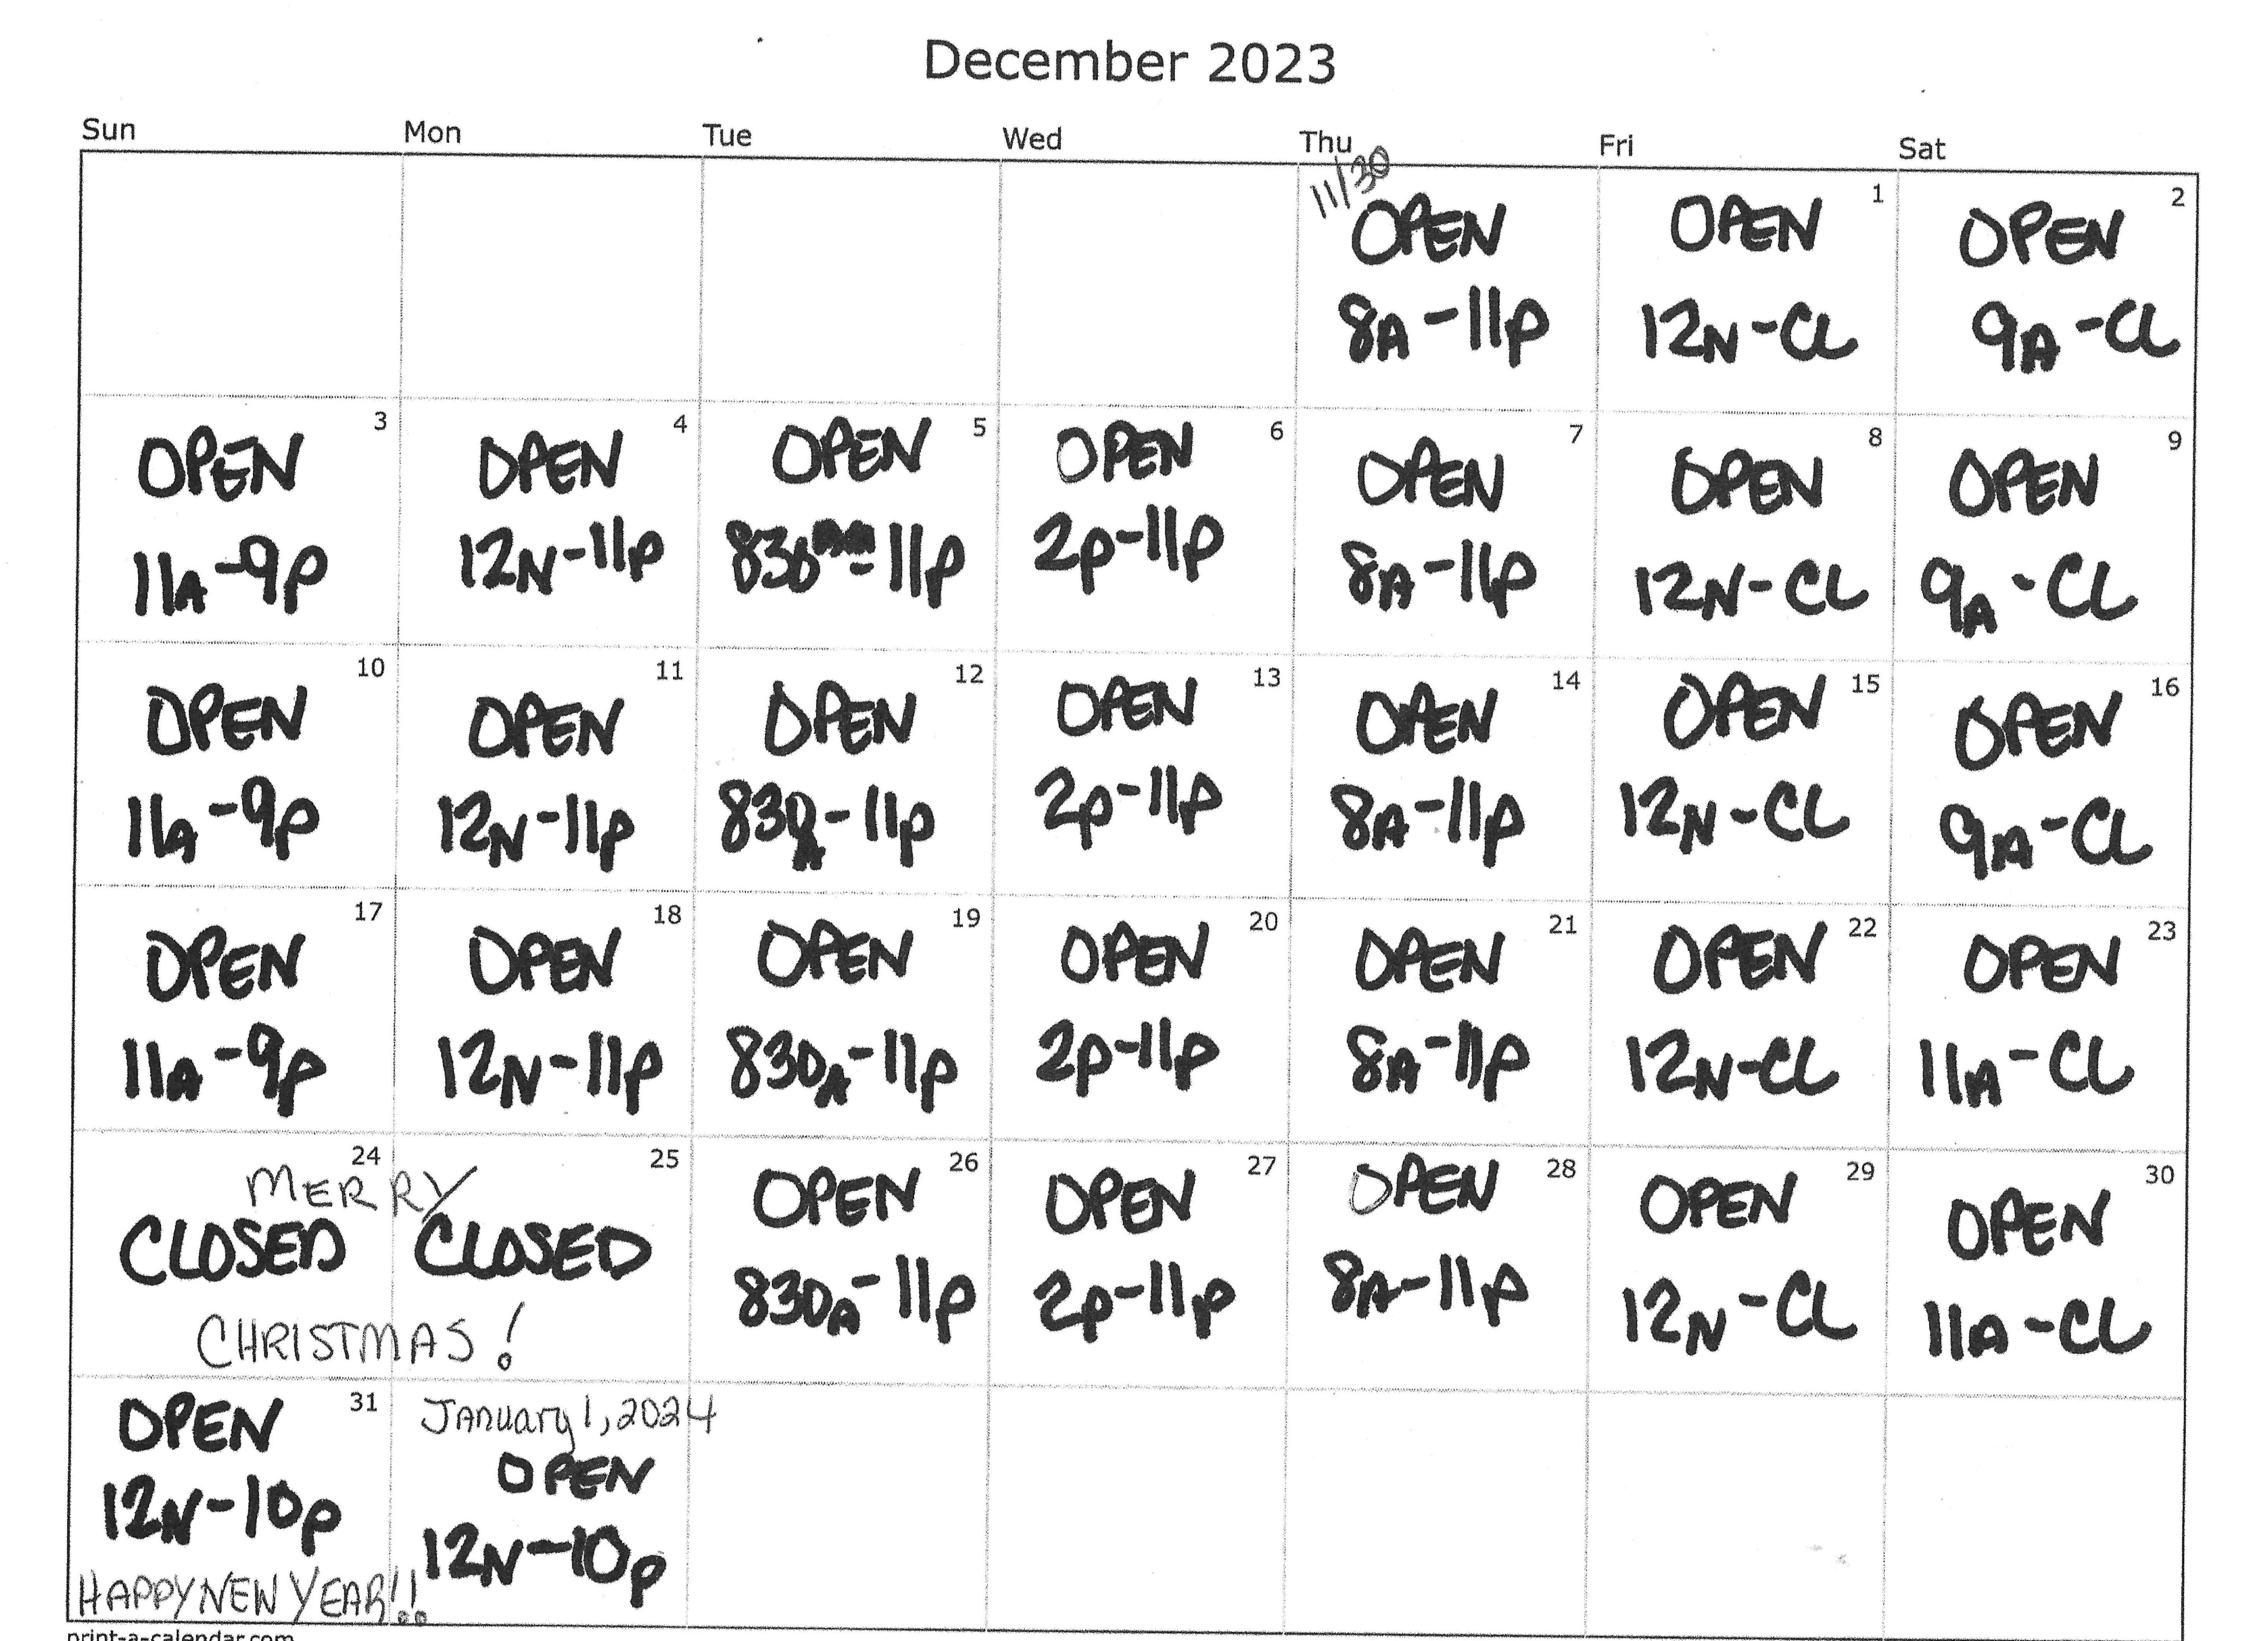 December 2023
Sun Mon Tue Wed Thu Fri Sat
11/30 1 2
OPEN OPEN OPEN
8A-11P 12N-CL 9A-CL
3 4 5 6 7 8 9
OPEN OPEN OPEN OPEN OPEN OPEN OPEN
11A-9P 12N-11P 830 -11P 2P-11P 8A-11P 12N-CL 9A-CL
10 11 12 13 14 15 16
OPEN OPEN OPEN OPEN OPEN OPEN OPEN
11A-9P 12N-11P 830A-11P 2P-11P 8A-11P 12N-CL 9A-CL
17 18 19 20 21 22 23
OPEN OPEN OPEN OPEN OPEN OPEN OPEN
11A-9P 12N-11P 830A-11P 2P-11P 8A-11P 12N-CL 11A-CL
24 25 26 27 28 29 30
MERRY
CLOSED CLOSED OPEN OPEN OPEN OPEN OPEN
830A-11P 2P-11P 8A-11P 12N-CL 11A-CL
CHRISTMAS!
31 January 1, 2024
OPEN OPEN
12N-10P 12N-10P
HAPPY NEW YEAR!!
print-a-calendar.com